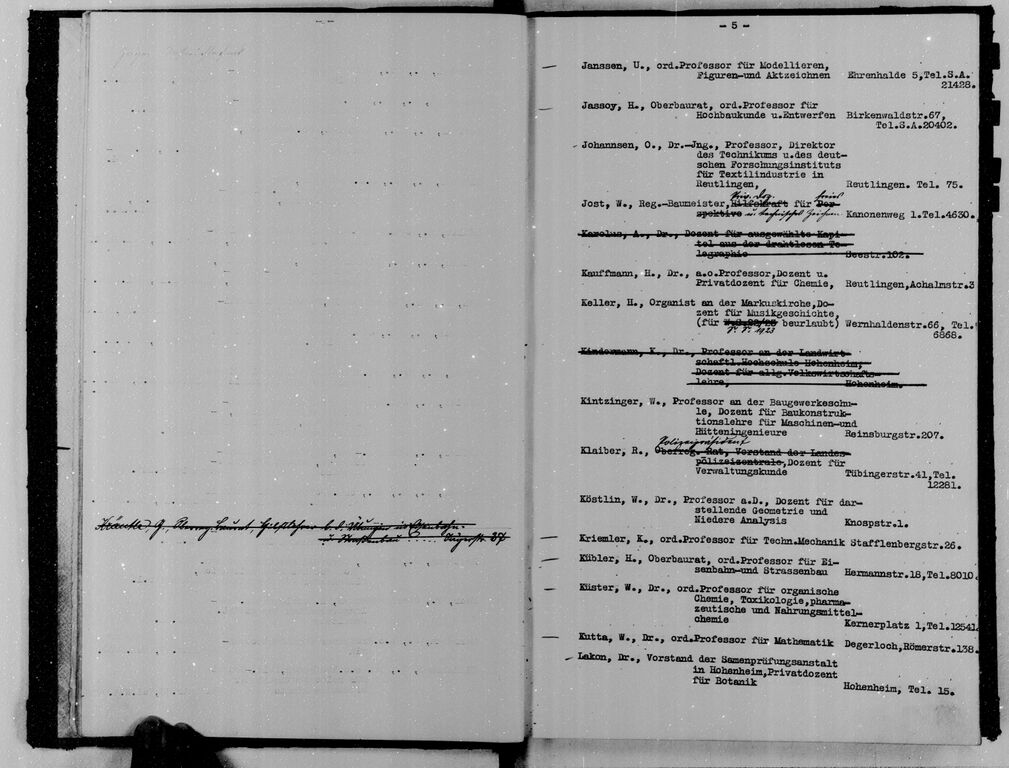 - 5 -
Janssen, U., ord.Professor für Modellieren,
Figuren-und Aktzeichnen Ehrenhalde 5,Tel.S.A.
21428.
Jassoy, H., Oberbaurat, ord.Professor für
Hochbaukunde u.Entwerfen Birkenwaldstr.67,
Tel.S.A.20402.
Johannsen, O., Dr.-Jng., Professor, Direktor
des Technikums u.des deut-
schen Forschungsinstituts
für Textilindustrie in
Reutlingen, Reutlingen. Tel. 75.
Priv. Doz. freies
Jost, W., Reg.-Baumeister,Hilfskraft für Per-
spektive u. technisches Zeichnen Kanonenweg 1.Tel.4630.
Karolus, A., Dr., Dozent für ausgewählte Kapi-
tel aus der drahtlosen Te-
legraphie Seestr.102.
Kauffmann, H., Dr., a.o.Professor,Dozent u.
Privatdozent für Chemie, Reutlingen,Achalmstr.3
Keller, H., Organist an der Markuskirche,Do-
zent für Musikgeschichte,
(für W.S.22/23 beurlaubt) Wernhaldenstr.66, Tel.
1923 6868.
Kindermann, K., Dr., Professor an der Landwirt-
schaftl.Hochschule Hohenheim,
Dozent für allg.Volkswirtschafts-
lehre, Hohenheim.
Kintzinger, W., Professor an der Baugewerkeschu-
le, Dozent für Baukonstruk-
tionslehre für Maschinen-und
Hütteningenieure Reinsburgstr.207.
Polizeipräsident
Klaiber, R., Oberreg. Rat, Vorstand der Landes-
polizeizentrale,Dozent für
Verwaltungskunde Tübingerstr.41,Tel.
12281.
Köstlin, W., Dr., Professor a.D., Dozent für dar-
stellende Geometrie und
Niedere Analysis Knospstr.1.
Kriemler, K., ord.Professor für Techn.Mechanik Stafflenbergstr.26.
Kübler, H., Oberbaurat, ord.Professor für Ei-
senbahn-und Strassenbau Hermannstr.18,Tel.8010.
Küster, W., Dr., ord.Professor für organische
Chemie, Toxikologie,pharma-
zeutische und Nahrungsmittel-
chemie Kernerplatz 1,Tel.12541.
Kutta, W., Dr., ord.Professor für Mathematik Degerloch,Römerstr.138.
Lakon, Dr., Vorstand der Samenprüfungsanstalt
in Hohenheim,Privatdozent
für Botanik Hohenheim, Tel. 15.